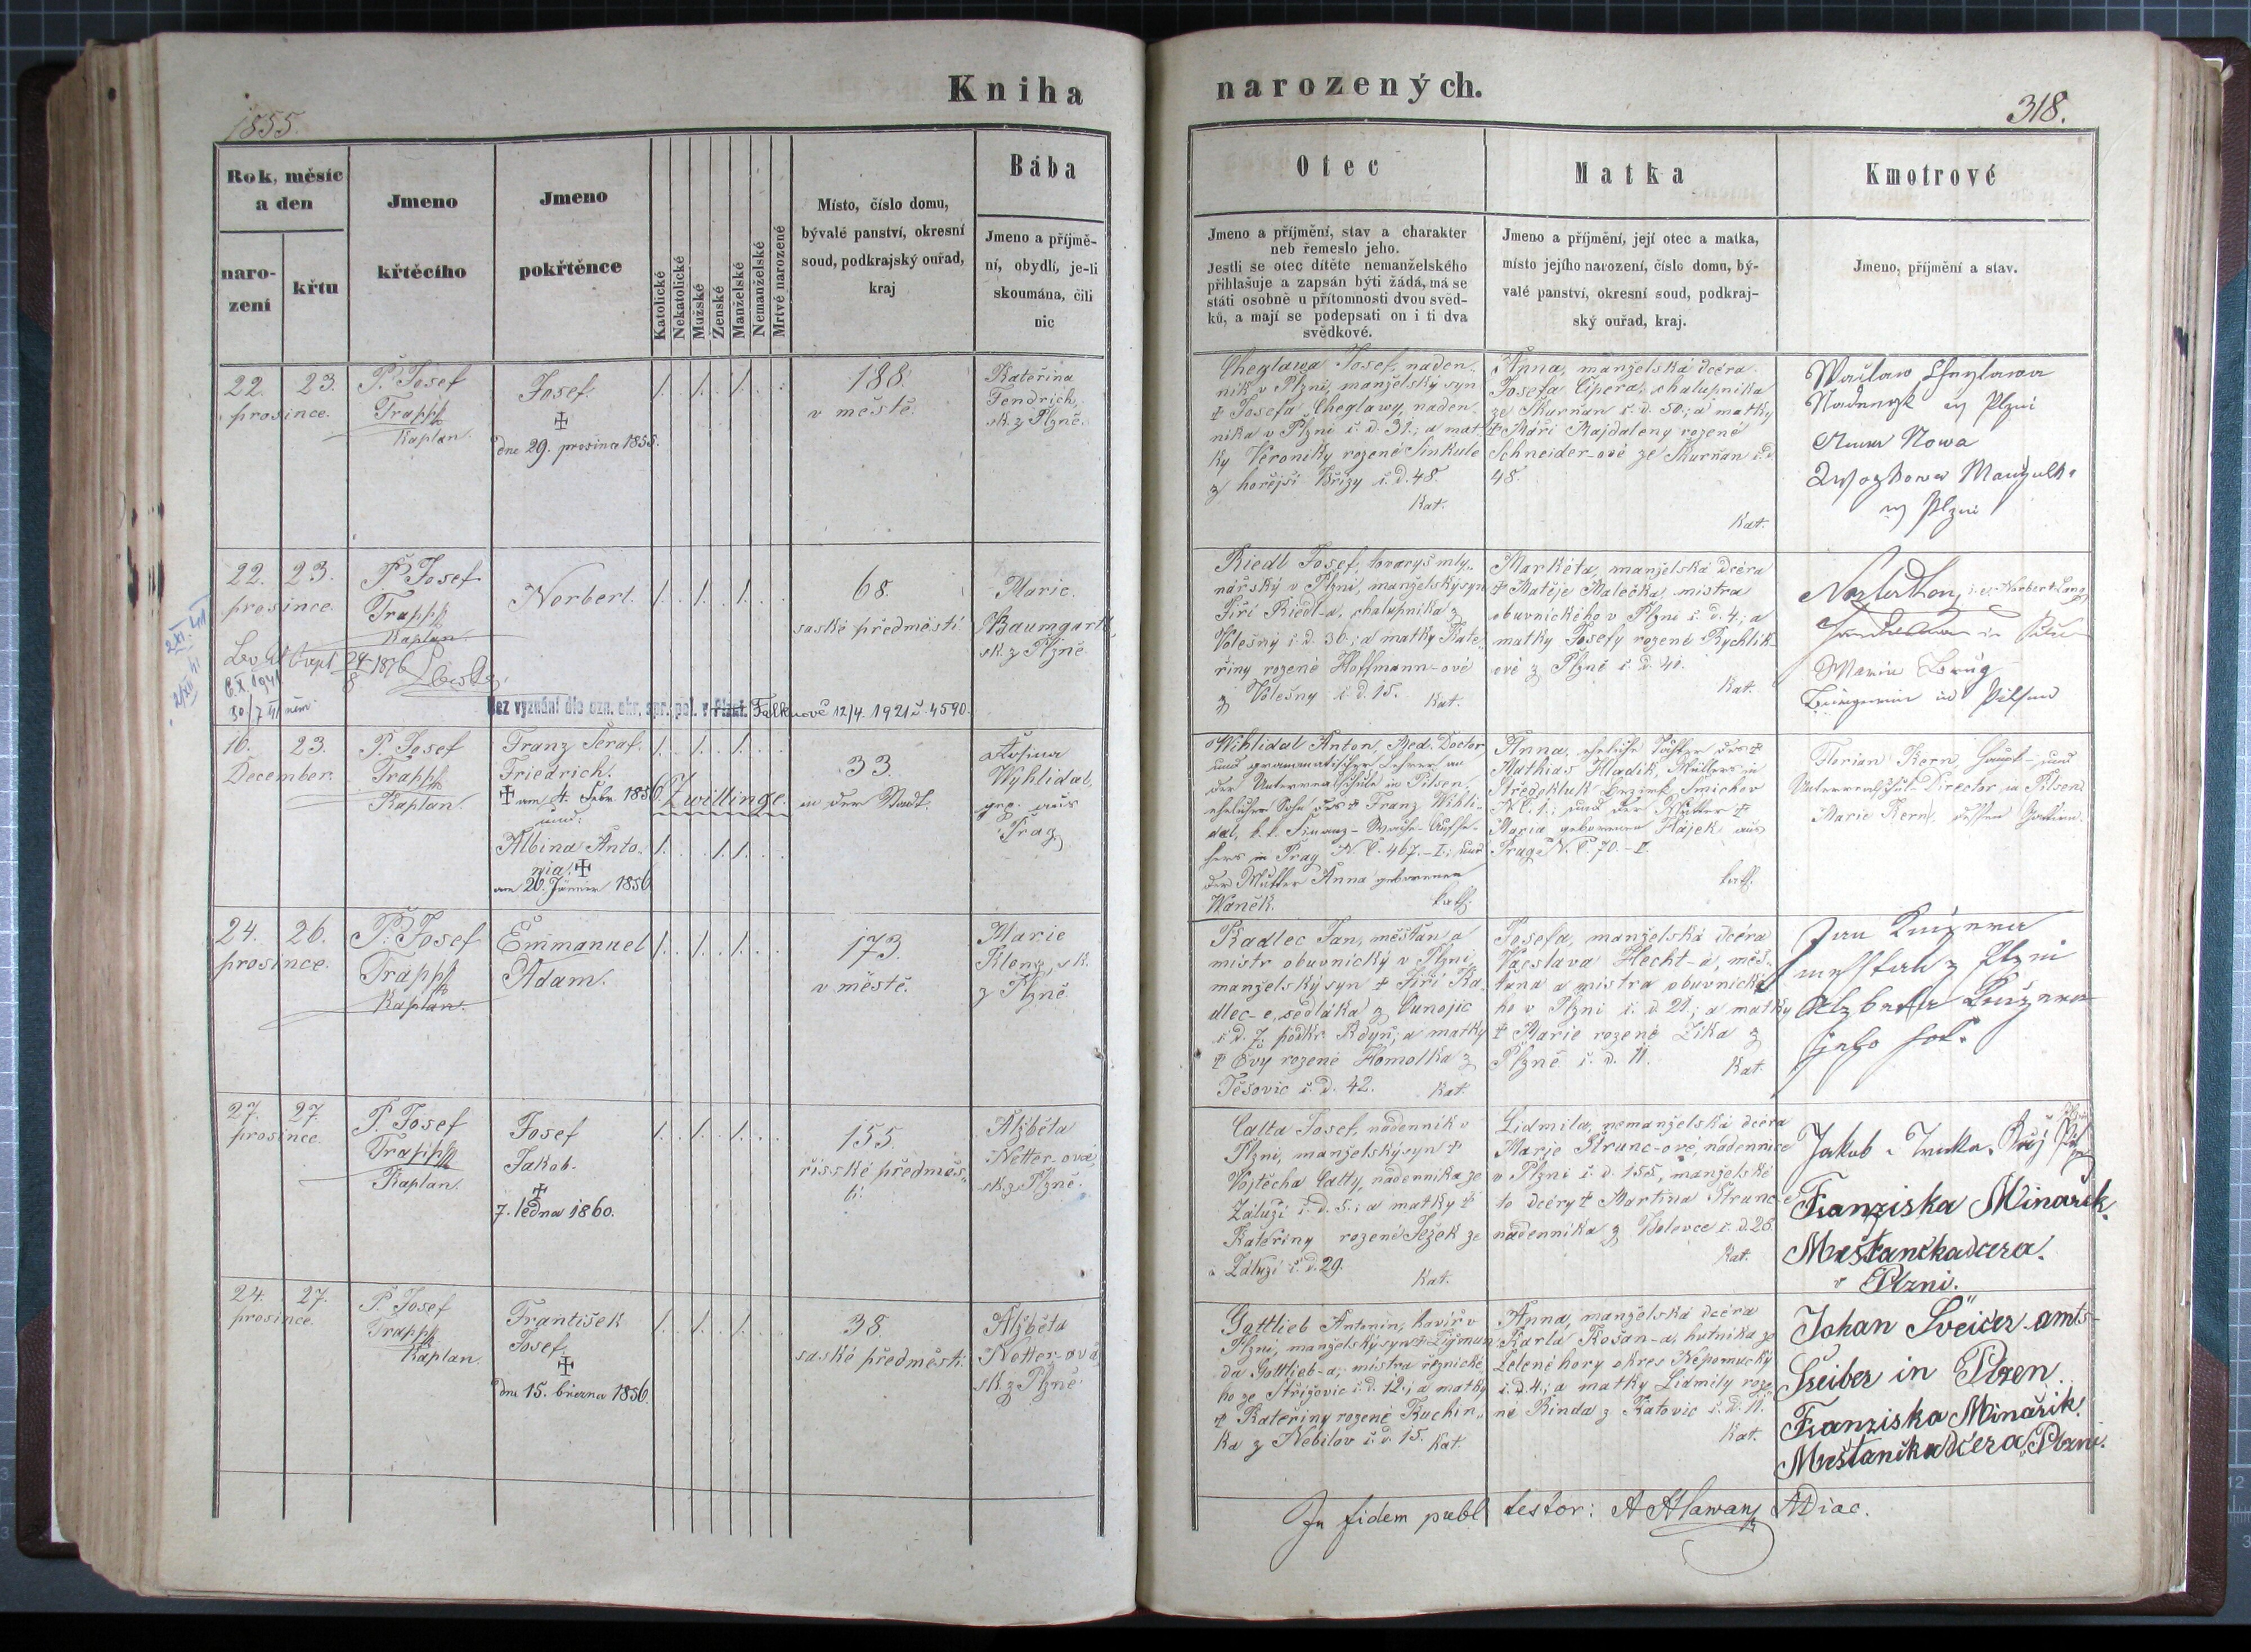 Kniha
narozených.
1855.
318.
Rok, měsíc
a den
naro-
zení
křtu
Jmeno
křtěcího
Jmeno
pokřtěnce
Katolické
Nekatolické
Mužské
Ženské
Manželské
Nemanželské
Mrtvé narozené
Místo, číslo domu,
bývalé panství, okresní
soud, podkrajský ouřad,
kraj
Bába
Jmeno a příjmě-
ní, obydlí, je-li
skoumána, čili
nic
Otec
Jmeno a příjmění, stav a charakter
neb řemeslo jeho.
Jestli se otec dítěte nemanželského
přihlašuje a zapsán býti žádá, má se
státi osobně u přítomnosti dvou svěd-
ků, a mají se podepsati on i ti dva
svědkové.
Matka
Jmeno a příjmění, její otec a matka,
místo jejího narození, číslo domu, bý-
valé panství, okresní soud, podkraj-
ský ouřad, kraj.
Kmotrové
Jmeno, příjmění a stav.
22. 23.
prosince.
P. Josef
Trapp
Kaplan.
Josef.
✝
dne 29. prosince 1855.
1. 1. 1.
188.
v městě.
Kateřina
Jendrich,
sk. z Plzně.
Cheglawa Josef, náden-
ník v Plzni, manželský syn
✝ Josefa Cheglawy, náden-
níka v Plzni č. d. 31.; a mat-
ky Veroniky rozené Sinkule
z hořejší Břízy č. d. 48.
Kat.
Anna, manželská dcéra
Josefa Čipera, chalupníka
ze Skurňan č. d. 50.; a matky
✝ Máří Majdaleny rozené
Schneider-ové ze Skurňan č. d.
48.
Kat.
Anna Nowa
w Plzni
22. 23.
prosince.
P. Josef
Trapp
Kaplan
Norbert.
1. 1. 1.
68.
saské předměstí
Marie
Baumgartl,
sk. z Plzně
Bez vyznání dle ozn. okr. spr. pol. v Plzni. Falknově 12/4. 1921 č. 4590.
Riedl Josef, tovaryš mly-
nářský v Plzni, manželský syn
Jiří Riedl-a, chalupníka z
Volešny č. d. 36.; a matky Kate-
řiny rozené Hoffmann-ové
z Volešny č. d. 15.
Kat.
Markéta, manželská dcéra
✝ Matěje Malečka, mistra
obuvnického v Plzni č. d. 4.; a
matky Josefy rozené Rychlík-
ové z Plzně č. d. 41.
Kat.
Norbert Lang
Maria
Bürgerin in Pilsen
16. 23.
December.
P. Josef
Trapp
Kaplan.
Franz Seraf.
Friedrich.
✝ am 4. Febr. 1856.
und:
Albina Anto-
nia. ✝
am 20. Jänner 1856
1. 1. 1.
Zwillinge.
1. 1. 1.
33.
in der Stadt.
Rosina
Wyhlidal,
gep. aus
Prag
Wihlidal Anton, Med. Doctor
und grammatischer Lehrer an
der Unterrealschule in Pilsen,
ehelicher Sohn des ✝ Franz Wihli-
dal, k. k. Finanz-Wach-Aufse-
hers in Prag N. C. 467.-I.; und
der Mutter Anna geborenen
Waněk.
kath.
Anna, eheliche Tochter des ✝
Mathias Hladik, Müllers in
Bezirk Smichov
N. C. 1.; und der Mutter ✝
Maria geborenen Hájek aus
Prag N. C. 70.-II.
kath.
Florian Kern, Haupt- und
Unterrealschul-Director in Pilsen.
Marie Kern, dessen Gattin.
24. 26.
prosince.
P. Josef
Trapp
Kaplan.
Emmanuel
Adam.
1. 1. 1.
173.
v městě.
Marie
Klenz, sk.
z Plzně
Kadlec Jan, měšťan a
mistr obuvnický v Plzni,
manželský syn ✝ Jiří Ka-
dlec-e, sedláka z Cunojic
č. d. 7. podkr. Kdyň; a matky
✝ Evy rozené Homolka z
Těšovic č. d. 42.
Kat.
Josefa, manželská dcéra
Václava Hecht-a, měš-
ťana a mistra obuvnické-
ho v Plzni č. d. 21.; a matky
✝ Marie rozené Zíka z
Plzně č. d. 11.
Kat.
27. 27.
prosince.
P. Josef
Trapp
Kaplan.
Josef
Jakob.
✝
7. ledna 1860.
1. 1. 1.
155.
říšské předměs-
tí.
Alžběta
Netter-ová,
sk. z Plzně.
Calta Josef, nádenník v
Plzni, manželský syn ✝
Vojtěcha Calty, nádenníka ze
Záluží č. d. 5.; a matky ✝
Kateřiny rozené Ježek ze
Záluží č. d. 29.
Kat.
Lidmila, nemanželská dcéra
Marie Strunc-ové, nádennice
v Plzni č. d. 155, manželské
to dcéry ✝ Martina Strunc-e
nádenníka z Bolevce č. d. 26.
Kat.
Franziska Minařik.
Mestanskadcera.
v Plzni.
24. 27.
prosince.
P. Josef
Trapp
Kaplan.
František
Josef.
✝
dne 15. března 1856.
1. 1. 1.
38.
saské předměstí.
Alžběta
Netter-ová
sk. z Plzně
Gottlieb Antonin, kovář v
Plzni, manželský syn ✝ Zigmun-
da Gottlieb-a, mistra řeznické-
ho ze Střížovic č. d. 12.; a matky
✝ Kateřiny rozené Kuchin-
ka z Nebílov č. d. 15. Kat.
Anna, manželská dcéra
Karla Košan-a, hutníka ze
Zelené hory okres Nepomucký
č. d. 4.; a matky Lidmily roze-
né Rinda z Katovic č. d. 11.
Kat.
Johan Šveicer amts-
Sreiber in Plzen.
Franziska Minařik.
Mestanskadcera v Plzni.
In fidem publ testor: A Hlawan ADiac.